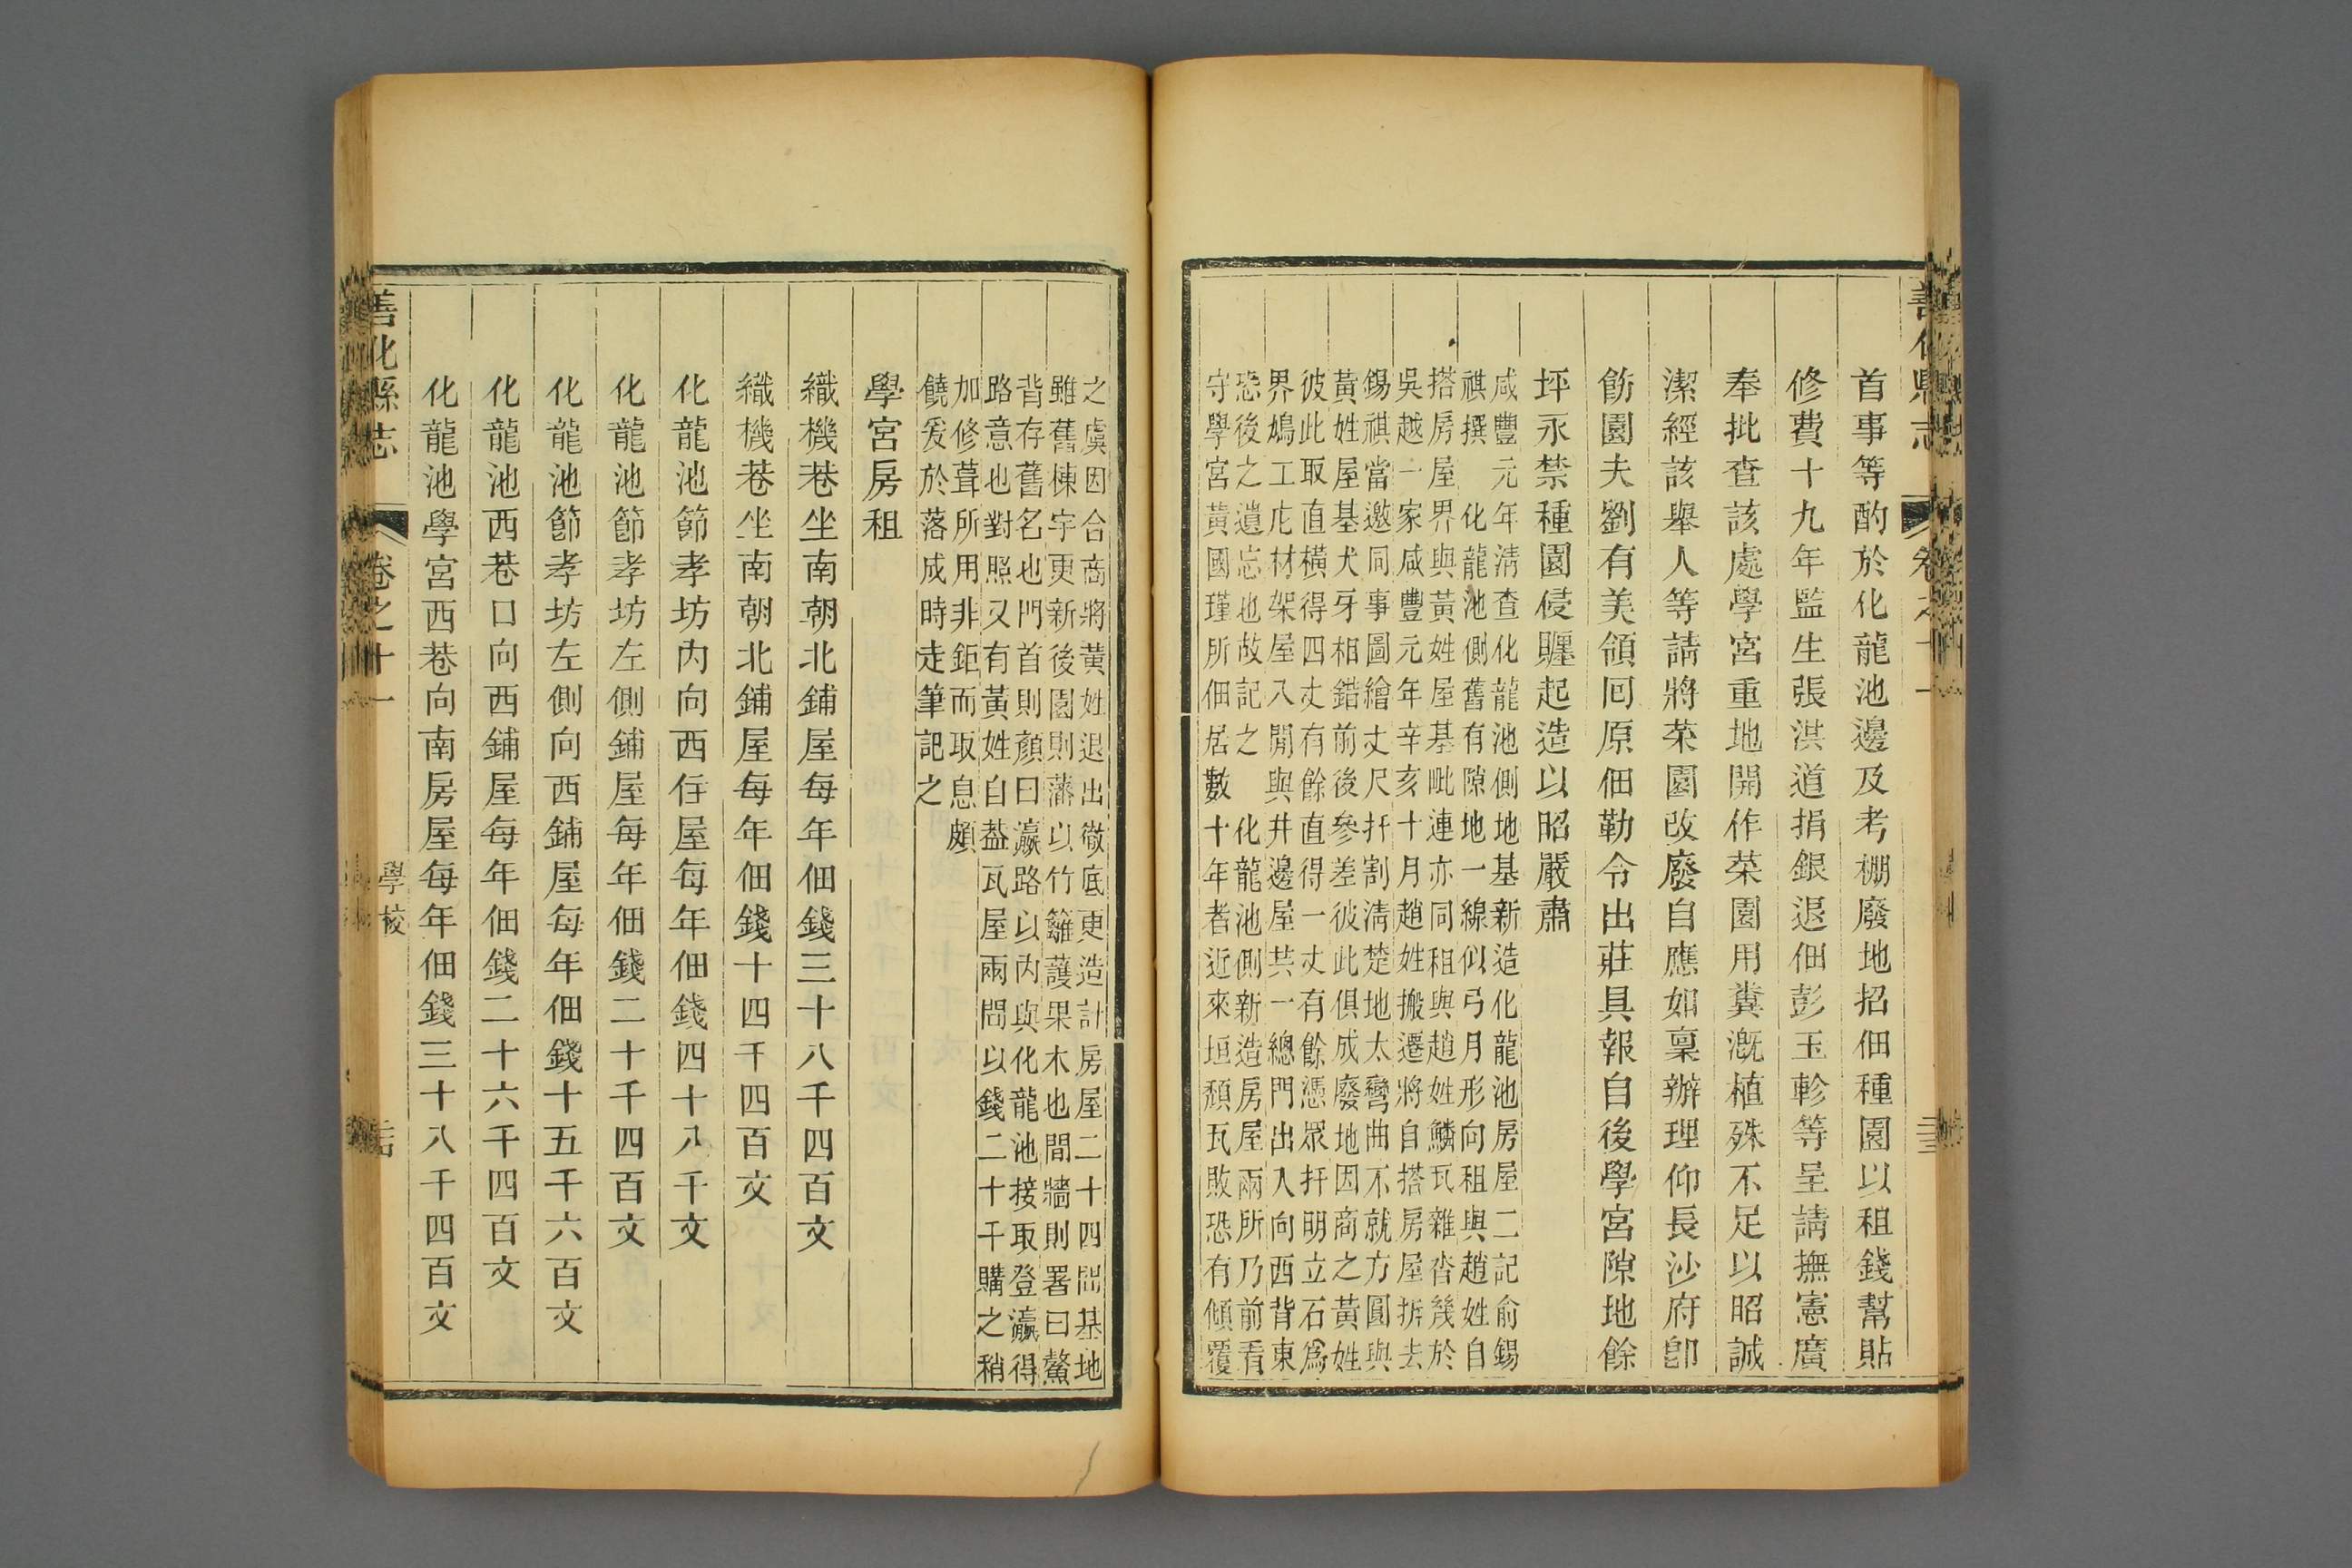 首事等酌於化龍池邊及考棚廢地招佃種園以租錢幫貼
修費十九年監生張淇道捐銀退佃彭玉軫等呈請撫憲廣
奉批查該處學宮重地開作菜園用糞溉植殊不足以昭誠
潔經該舉人等請將菜園改廢自應如稟辦理仰長沙府卽
飭園夫劉有美領囘原佃勒令出莊具報自後學宮隙地餘
坪永禁種園侵駆起造以昭嚴肅
咸豐元年淸查化龍池側地基新造化龍池房屋二記俞錫
祺撰 化龍池側舊有隙地一線似弓月形向租與趙姓自
搭房屋界與黃姓屋基毗連亦同租與趙姓鱗瓦雜沓幾於
吳越一家咸豐元年辛亥十月趙姓搬遷將自搭房屋拆去
錫祺當邀同事圖繪丈尺扦割淸楚地太彎曲不就方圓與
黃姓屋基犬牙相錯前後參差彼此俱成廢地因商之黃姓
彼此取直橫得四丈有餘直得一丈有餘憑眾扦明立石爲
界鳩工庀材架屋八間與井邊屋共一總門出入向西背東
恐後之遺忘也故記之 化龍池側新造房屋兩所乃前看
守學宮黃國瑾所佃居數十年者近來垣頹瓦敗恐有傾覆
善化縣志 卷之十一
之虞因合商將黃姓退出徹底更造計房屋二十四間基地
雖舊棟宇更新後園則藩以竹籬護果木也間牆則署曰鰲
背存舊名也門首則顏曰瀛路以內與化龍池接取登瀛得
路意也對照又有黃姓自葢瓦屋兩間以錢二十千購之稍
加修葺所用非鉅而取息頗
饒爰於落成時走筆記之
學宮房租
織機巷坐南朝北鋪屋每年佃錢三十八千四百文
織機巷坐南朝北鋪屋每年佃錢十四千四百文
化龍池節孝坊內向西住屋每年佃錢四十八千文
化龍池節孝坊左側鋪屋每年佃錢二十千四百文
化龍池節孝坊左側向西鋪屋每年佃錢十五千六百文
化龍池西巷口向西鋪屋每年佃錢二十六千四百文
化龍池學宮西巷向南房屋每年佃錢三十八千四百文
善化縣志 卷之十一 學校